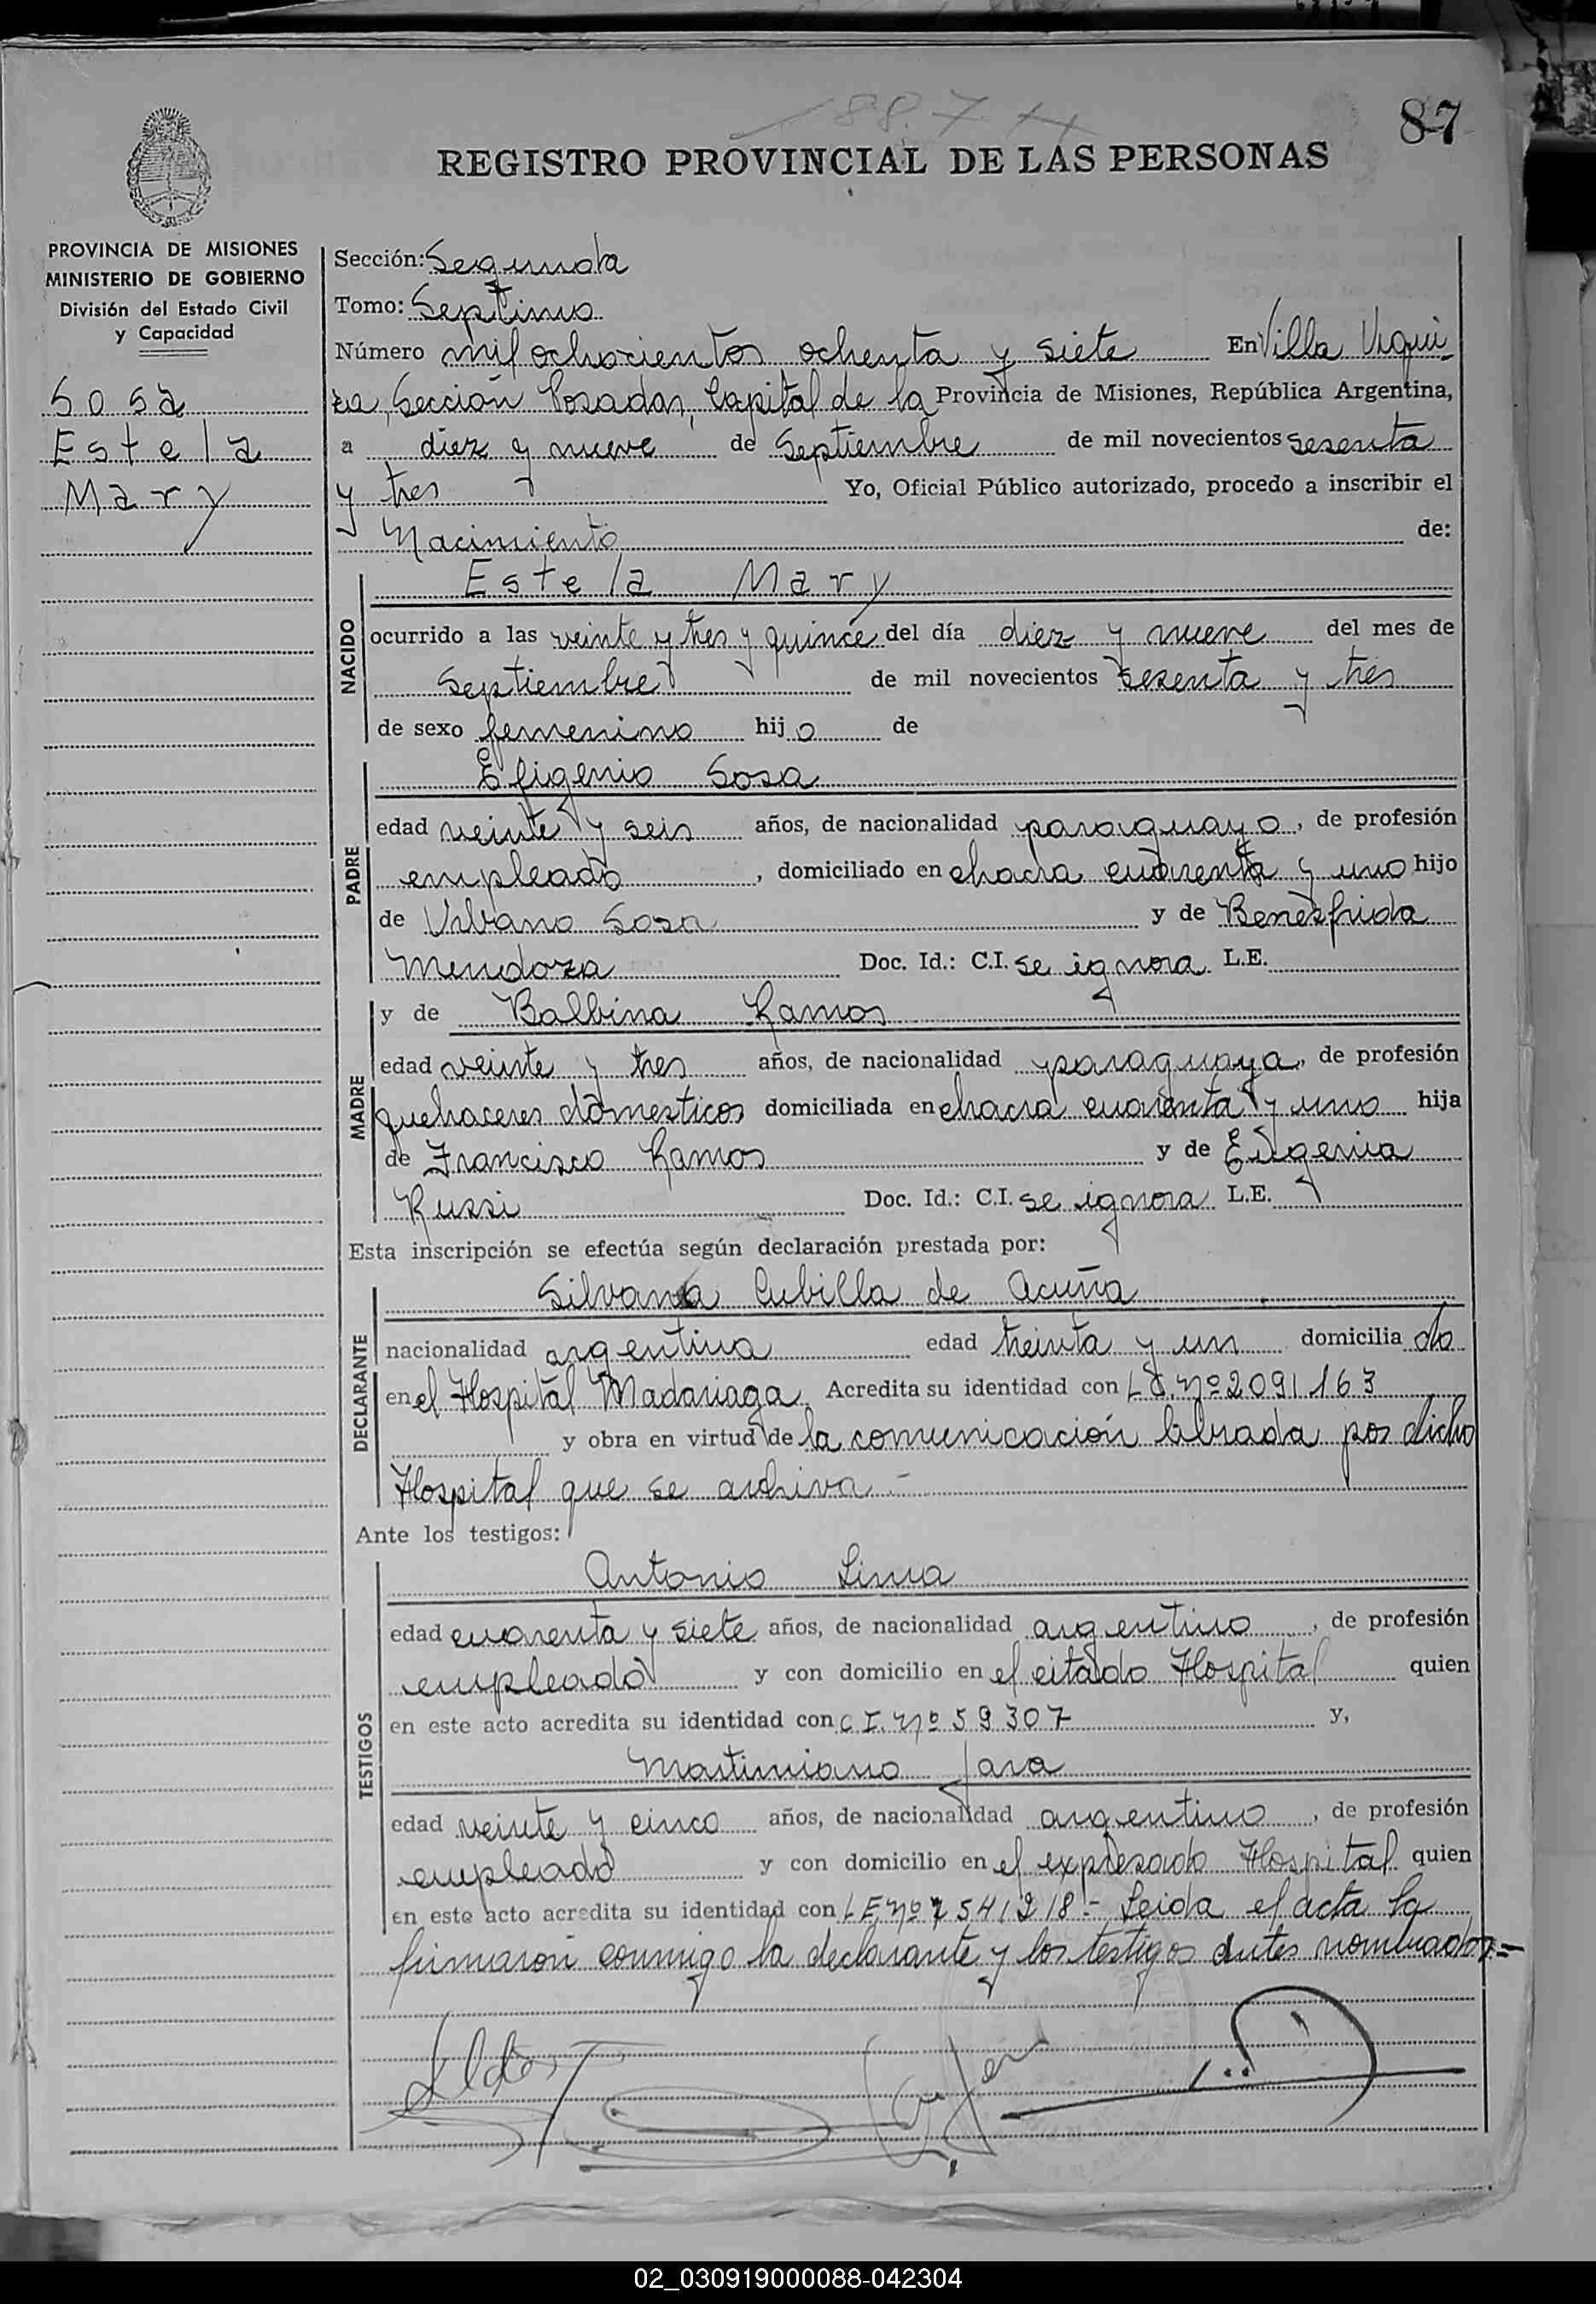 87
REGISTRO PROVINCIAL DE LAS PERSONAS
PROVINCIA DE MISIONES
MINISTERIO DE GOBIERNO
División del Estado Civil
y Capacidad
Sosa
Estela
Mary
Sección: Segunda
Tomo: Septimo
Número mil ochocientos ochenta y siete En Villa Urqui-
za, Sección Posadas, Capital de la Provincia de Misiones, República Argentina,
a diez y nueve de Septiembre de mil novecientos sesenta
y tres Yo, Oficial Público autorizado, procedo a inscribir el
Nacimiento de:
NACIDO
Estela Mary
ocurrido a las veinte y tres y quince del día diez y nueve del mes de
Septiembre de mil novecientos sesenta y tres
de sexo femenino hijo de
PADRE
Efigenio Sosa
edad veinte y seis años, de nacionalidad paraguayo, de profesión
empleado, domiciliado en chacra cuarenta y uno hijo
de Urbano Sosa y de Benesfrida
Mendoza Doc. Id.: C.I. se ignora L.E.
MADRE
y de Balbina Ramos
edad veinte y tres años, de nacionalidad paraguaya, de profesión
quehaceres domesticos domiciliada en chacra cuarenta y uno hija
de Francisco Ramos y de
Russi Doc. Id.: C.I. se ignora L.E.
Esta inscripción se efectúa según declaración prestada por:
DECLARANTE
Silvana Cubilla de Acuña
nacionalidad argentina edad treinta y un domicilia da
en el Hospital Madariaga Acredita su identidad con Nº 2091163
y obra en virtud de la comunicación librada por dicho
Hospital que se archiva.-
Ante los testigos:
TESTIGOS
Antonio Lima
edad cuarenta y siete años, de nacionalidad argentino, de profesión
empleado y con domicilio en el citado Hospital quien
en este acto acredita su identidad con C I. Nº 59307 y,
Martimiano Jara
edad veinte y cinco años, de nacionalidad argentino, de profesión
empleado y con domicilio en el expresado Hospital quien
en este acto acredita su identidad con L E Nº 7541218.- Leida el acta la
firmaron conmigo la declarante y los testigos antes nombrados.=
02_030919000088-042304